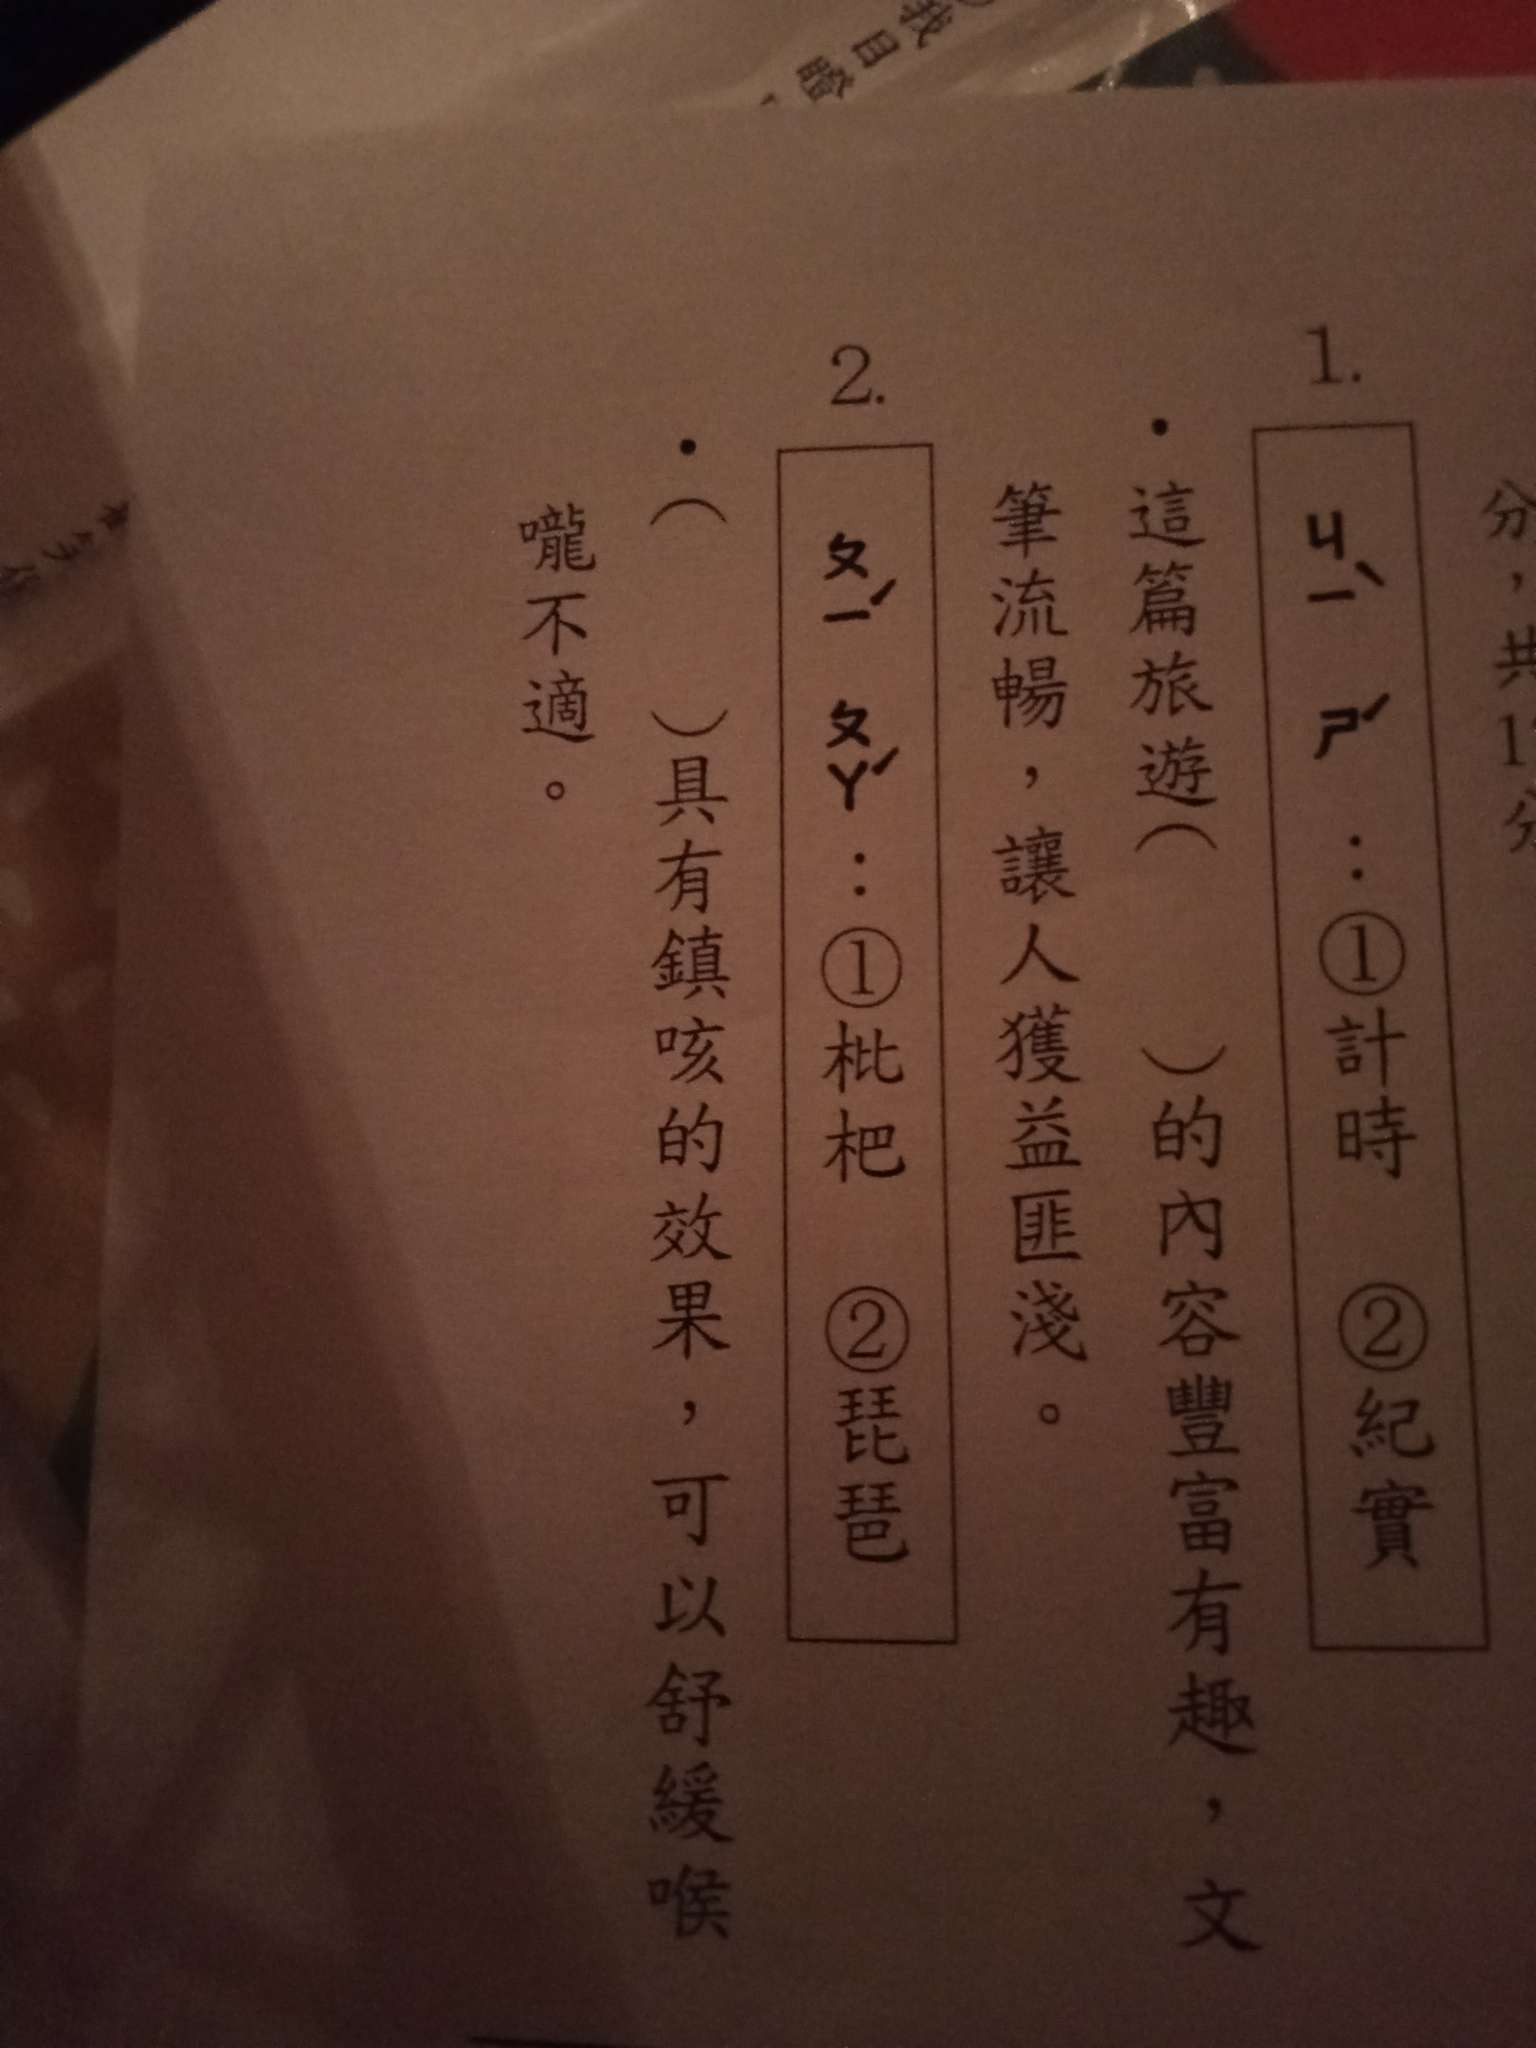 分，共1
分
1.
ㄐㄧˋ ㄕˊ：①計時 ②紀實
・這篇旅遊（ ）的內容豐富有趣，文
筆流暢，讓人獲益匪淺。
2.
ㄆㄧˊ ㄆㄚˊ：①枇杷 ②琵琶
・（ ）具有鎮咳的效果，可以舒緩喉
嚨不適。
我目瞻